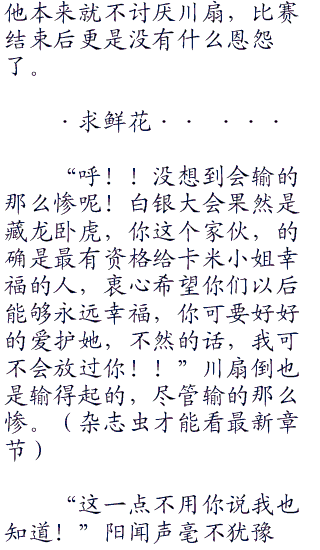 他本来就不讨厌川扇，比赛
结束后更是没有什么恩怨
了。
·求鲜花·· ···
“呼！！没想到会输的
那么惨呢！白银大会果然是
藏龙卧虎，你这个家伙，的
确是最有资格给卡米小姐幸
福的人，衷心希望你们以后
能够永远幸福，你可要好好
的爱护她，不然的话，我可
不会放过你！！”川扇倒也
是输得起的，尽管输的那么
惨。（杂志虫才能看最新章
节）
“这一点不用你说我也
知道！”阳闻声毫不犹豫